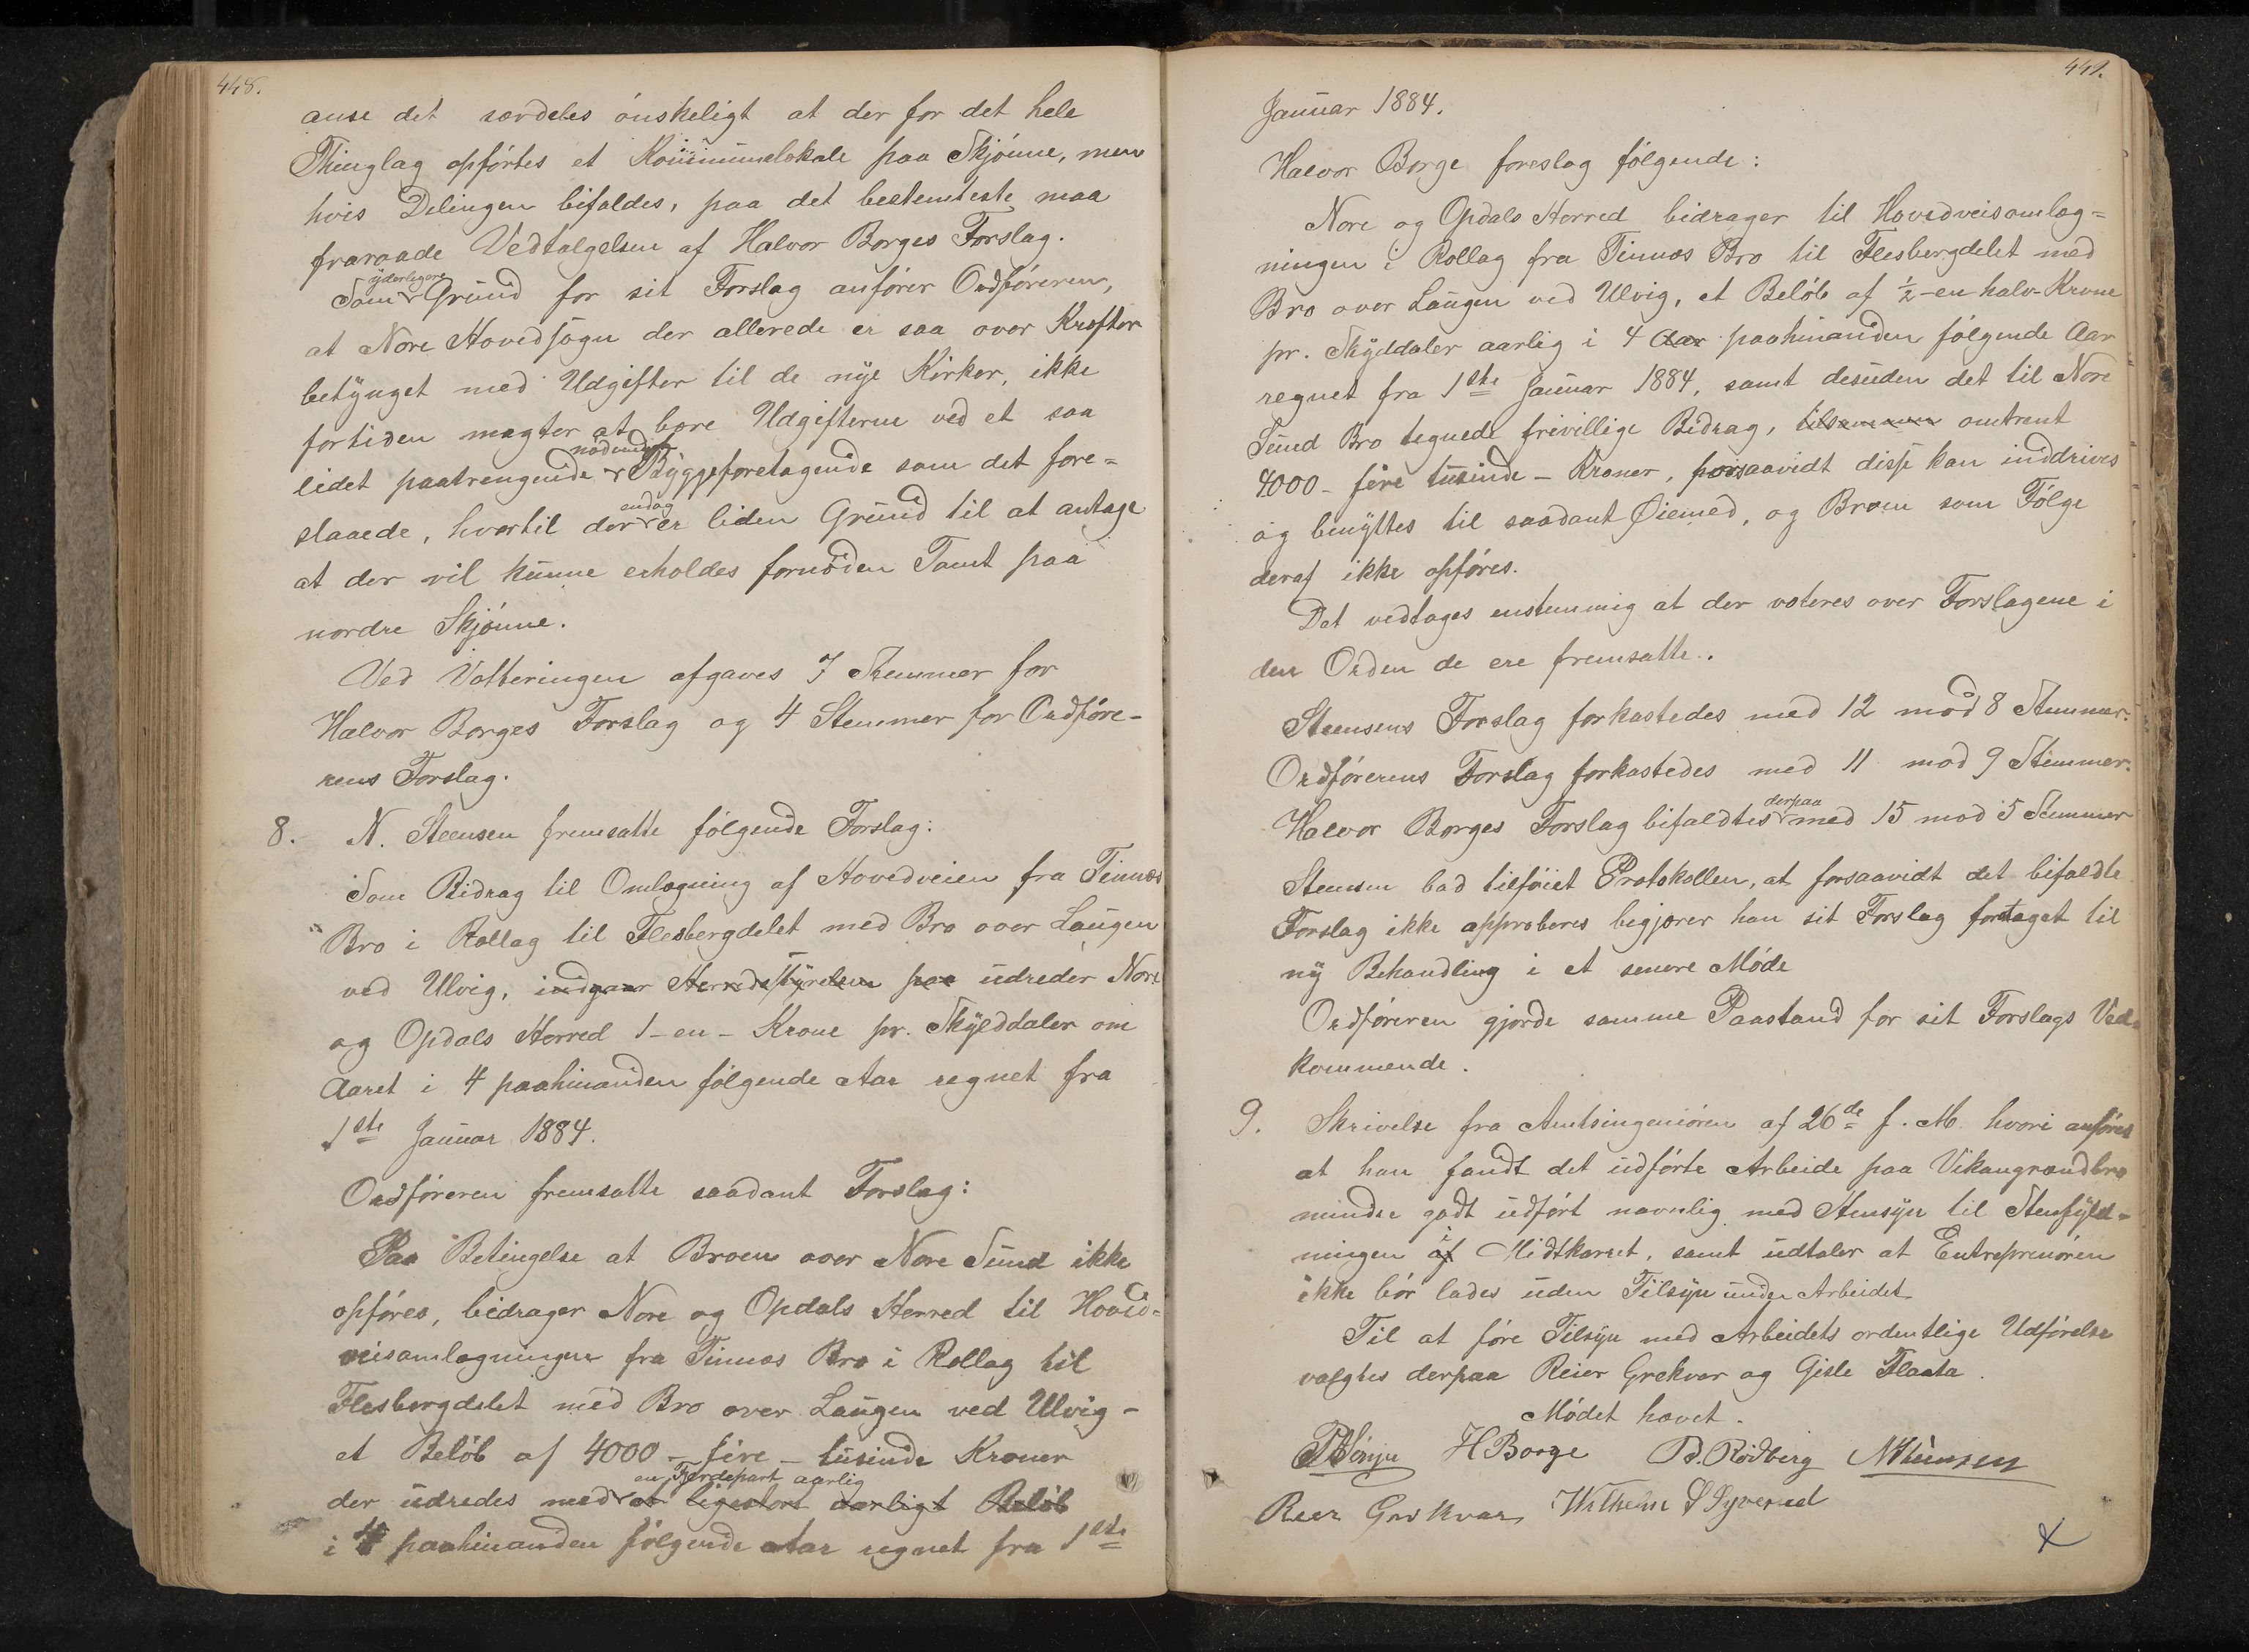 448.
anse det særdeles ønskeligt at der for det hele
Thinglag opførtes et Kommunelokale paa Skjønne, men
hvis Delingen bifaldes, paa det bestemteste maa
fraraade Vedtagelsen af Halvor Borges Forslag.
Som yderligere Grund for sit Forslag anfører Ordføreren,
at Nore Hovedsogn der allerede er saa over Kræfter
betynget med Udgifter til de nye Kirker, ikke
fortiden magter at bære Udgifterne ved et saa
lidet paatrængende nødvendigt Byggeforetagende som det fore=
slaaede, hvortil der endog er liden Grund til at antage
at der vil kunne erholdes fornøden Tomt paa
nordre Skjønne.
Ved Votteringen afgaves 7 Stemmer for
Halvor Borges Forslag og 4 Stemmer for Ordføre-
rens Forslag.
8. N. Steensen fremsatte følgende Forslag:
Som Bidrag til Omlægning af Hovedveien fra Tinnæs
Bro i Rollag til Flesbergdelet med Bro over Laugen
ved Ulvig, indgaar Herredsstyrelsen paa udreder Nore
og Opdals Herred 1-en- Krone pr. Skylddaler om
Aaret i 4 paahinanden følgende Aar regnet fra
1ste Januar 1884.
Ordføreren fremsatte saadant Forslag:
Paa Betingelse at Broen over Nore Sund ikke
opføres, bidrager Nore og Opdals Herred til Hoved=
veisomlægningen fra Tinnæs Bro i Rollag til
Flesbergdelet med Bro over Laugen ved Ulvig -
et Beløb af 4000 - fire - tusinde Kroner
der udredes med en Fjerdepart aarlig et ligestort aarligt Beløb
i 4 paahinanden følgende Aar regnet fra 1ste
449.
Januar 1884.
Halvor Borge foreslog følgende:
Nore og Opdals Herred bidrager til Hovedveisomlæg=
ningen i Rollag fra Tinnæs Bro til Flesbergdelet med
Bro over Laugen ved Ulvig, et Beløb af ½-en halv-Krone
pr. Skylddaler aarlig i 4 Aar paahinanden følgende Aar
regnet fra 1ste Januar 1884, samt desuden det til Nore
Sund Bro tegnede frivillige Bidrag, tilsammen omtrent
4000 - fire tusinde - Kroner, forsaavidt disse kan inddrives
og benyttes til saadant Øiemed, og Broen som Følge
deraf ikke opføres.
Det vedtages enstemmig at der voteres over Forslagene i
den Orden de ere fremsatte.
Steensens Forslag forkastedes med 12 mod 8 Stemmer.
Ordførerens Forslag forkastedes med 11 mod 9 Stemmer.
Halvor Borges Forslag bifaldtes derpaa med 15 mod 5 Stemmer
Steensen bad tilføiet Protokollen, at forsaavidt det bifaldte
Forslag ikke approberes begjærer han sit Forslag foretaget til
ny Behandling i et senere Møde
Ordføreren gjorde samme Paastand for sit Forslags Ved=
kommende.
9. Skrivelse fra Amtsingeniøren af 26de f. M. hvori anføres
at han fandt det udførte Arbeide paa Vikangrændbro
mindre godt udført navnlig med Hensyn til Stenfyld=
ningen af i Midtkarret, samt udtaler at Entreprenøren
ikke bør lades uden Tilsyn under Arbeidet
Til at føre Tilsyn med Arbeidets ordentlige Udførelse
valgtes derpaa Reier Grøkvar og Gisle Flaata.
Mødet hævet.
HBorge B. Rødberg NSteensen
Reer Wilhelm